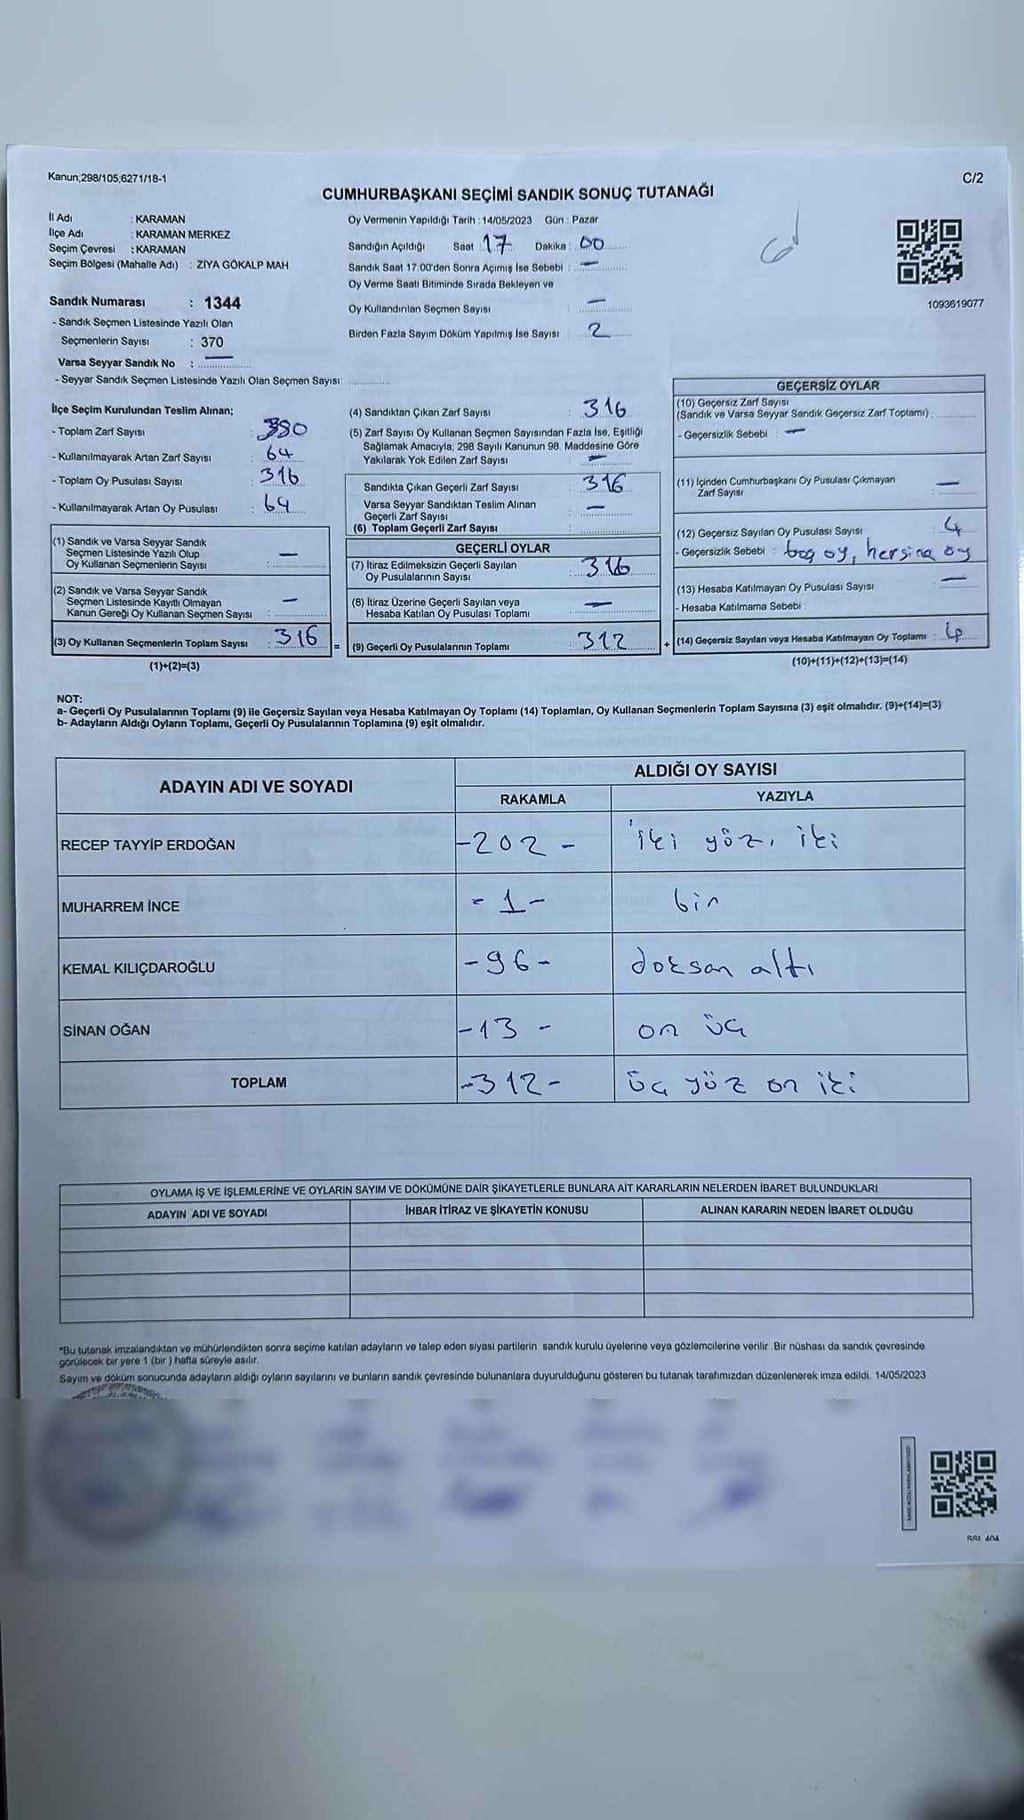 Kanun;298/105;6271/18-1
C/2
CUMHURBAŞKANI SEÇİMİ SANDIK SONUÇ TUTANAĞI
İl Adı : KARAMAN
İlçe Adı : KARAMAN MERKEZ
Seçim Çevresi : KARAMAN
Seçim Bölgesi (Mahalle Adı) : ZİYA GÖKALP MAH
Sandık Numarası : 1344
- Sandık Seçmen Listesinde Yazılı Olan
Seçmenlerin Sayısı : 370
Varsa Seyyar Sandık No : —
- Seyyar Sandık Seçmen Listesinde Yazılı Olan Seçmen Sayısı:
Oy Vermenin Yapıldığı Tarih : 14/05/2023 Gün : Pazar
Sandığın Açıldığı Saat : 17 Dakika : 00
Sandık Saat 17:00'den Sonra Açımış İse Sebebi : —
Oy Verme Saati Bitiminde Sırada Bekleyen ve
Oy Kullandırılan Seçmen Sayısı : —
Birden Fazla Sayım Döküm Yapılmış İse Sayısı : 2
1093619077
İlçe Seçim Kurulundan Teslim Alınan;
- Toplam Zarf Sayısı : 380
- Kullanılmayarak Artan Zarf Sayısı : 64
- Toplam Oy Pusulası Sayısı : 316
- Kullanılmayarak Artan Oy Pusulası : 64
(1) Sandık ve Varsa Seyyar Sandık
Seçmen Listesinde Yazılı Olup
Oy Kullanan Seçmenlerin Sayısı : —
(2) Sandık ve Varsa Seyyar Sandık
Seçmen Listesinde Kayıtlı Olmayan
Kanun Gereği Oy Kullanan Seçmen Sayısı : —
(3) Oy Kullanan Seçmenlerin Toplam Sayısı : 316
(1)+(2)=(3)
(4) Sandıktan Çıkan Zarf Sayısı : 316
(5) Zarf Sayısı Oy Kullanan Seçmen Sayısından Fazla İse, Eşitliği
Sağlamak Amacıyla; 298 Sayılı Kanunun 98. Maddesine Göre
Yakılarak Yok Edilen Zarf Sayısı : —
Sandıkta Çıkan Geçerli Zarf Sayısı : 316
Varsa Seyyar Sandıktan Teslim Alınan
Geçerli Zarf Sayısı : —
(6) Toplam Geçerli Zarf Sayısı :
GEÇERLİ OYLAR
(7) İtiraz Edilmeksizin Geçerli Sayılan
Oy Pusulalarının Sayısı : 316
(8) İtiraz Üzerine Geçerli Sayılan veya
Hesaba Katılan Oy Pusulası Toplamı : —
= (9) Geçerli Oy Pusulalarının Toplamı : 312
GEÇERSİZ OYLAR
(10) Geçersiz Zarf Sayısı
(Sandık ve Varsa Seyyar Sandık Geçersiz Zarf Toplamı) :
- Geçersizlik Sebebi : —
(11) İçinden Cumhurbaşkanı Oy Pusulası Çıkmayan
Zarf Sayısı : —
(12) Geçersiz Sayılan Oy Pusulası Sayısı : 4
- Geçersizlik Sebebi : boş oy, hersine oy
(13) Hesaba Katılmayan Oy Pusulası Sayısı : —
- Hesaba Katılmama Sebebi :
+ (14) Geçersiz Sayılan veya Hesaba Katılmayan Oy Toplamı : 4
(10)+(11)+(12)+(13)=(14)
NOT:
a- Geçerli Oy Pusulalarının Toplamı (9) ile Geçersiz Sayılan veya Hesaba Katılmayan Oy Toplamı (14) Toplamları, Oy Kullanan Seçmenlerin Toplam Sayısına (3) eşit olmalıdır. (9)+(14)=(3)
b- Adayların Aldığı Oyların Toplamı, Geçerli Oy Pusulalarının Toplamına (9) eşit olmalıdır.
ADAYIN ADI VE SOYADI ALDIĞI OY SAYISI
RAKAMLA YAZIYLA
RECEP TAYYİP ERDOĞAN -202- iki yöz, iki
MUHARREM İNCE -1- bir
KEMAL KILIÇDAROĞLU -96- doksan altı
SİNAN OĞAN -13- on üç
TOPLAM -312- üç yüz on iki
OYLAMA İŞ VE İŞLEMLERİNE VE OYLARIN SAYIM VE DÖKÜMÜNE DAİR ŞİKAYETLERLE BUNLARA AİT KARARLARIN NELERDEN İBARET BULUNDUKLARI
ADAYIN ADI VE SOYADI İHBAR İTİRAZ VE ŞİKAYETİN KONUSU ALINAN KARARIN NEDEN İBARET OLDUĞU
*Bu tutanak imzalandıktan ve mühürlendikten sonra seçime katılan adayların ve talep eden siyasi partilerin sandık kurulu üyelerine veya gözlemcilerine verilir. Bir nüshası da sandık çevresinde
görülecek bir yere 1 (bir) hafta süreyle asılır.
Sayım ve döküm sonucunda adayların aldığı oyların sayılarını ve bunların sandık çevresinde bulunanlara duyurulduğunu gösteren bu tutanak tarafımızdan düzenlenerek imza edildi. 14/05/2023